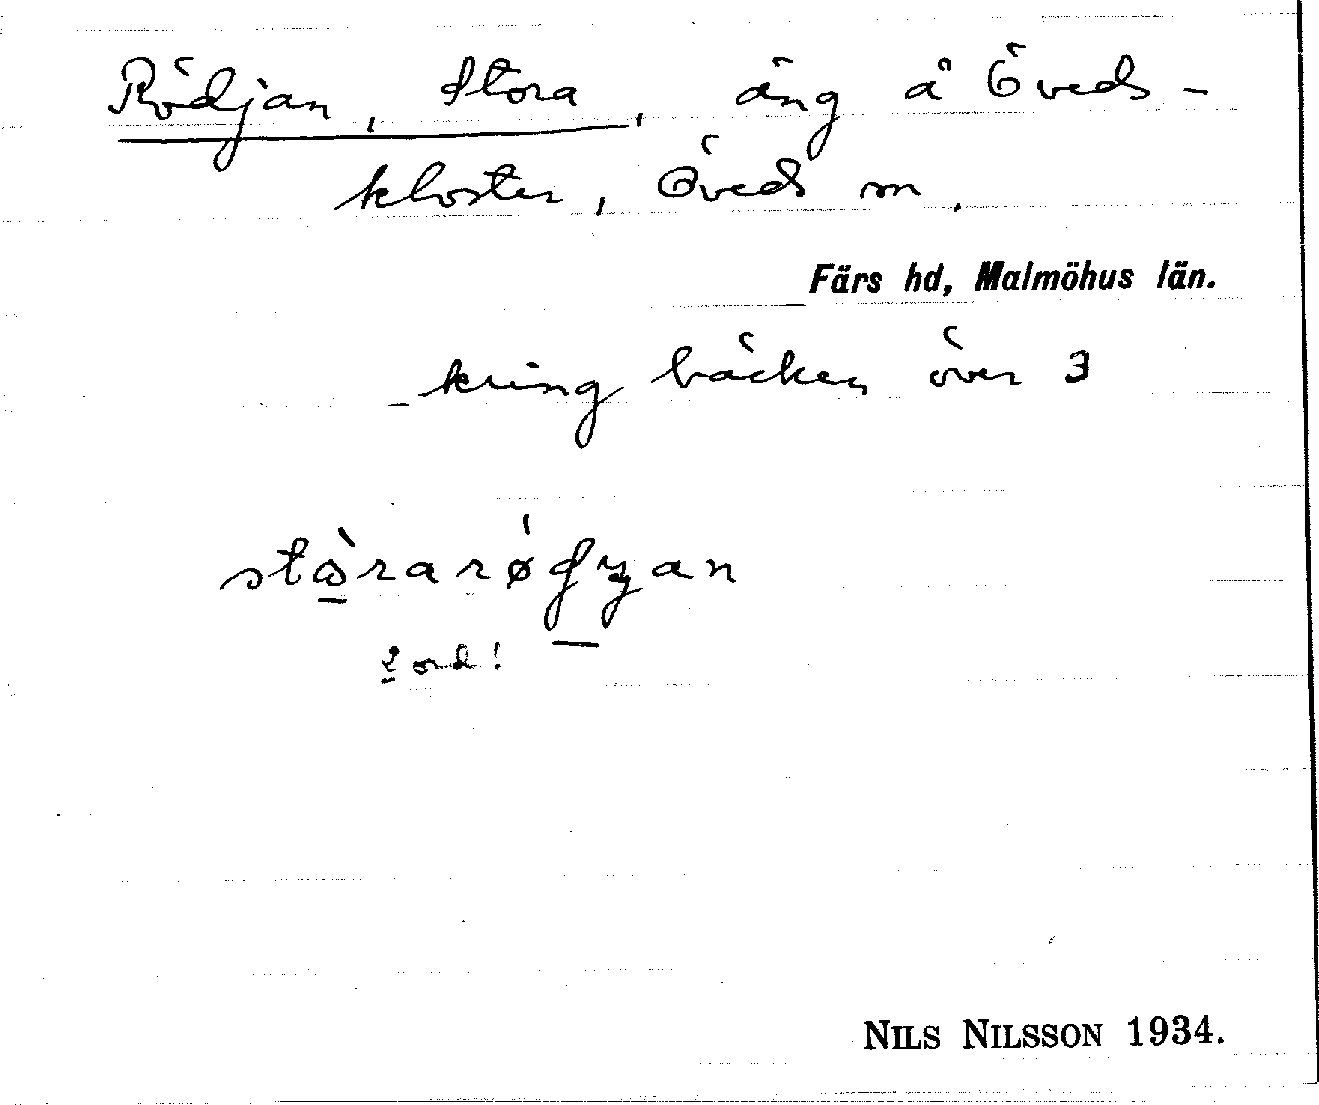 Rödjan, Stora, äng å Öveds-
kloster, Öveds sn.
Färs hd, Malmöhus län.
kring bäcken över 3
2 ord!
NILS NILSSON 1934.